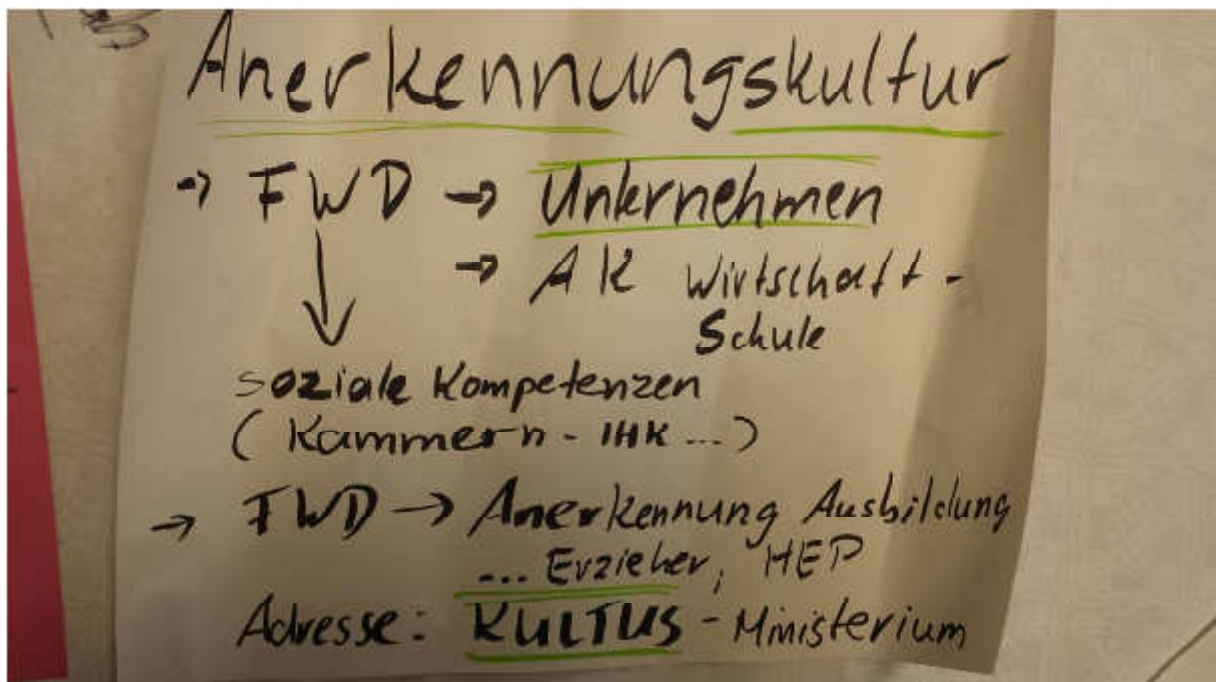 Anerkennungskultur
→ FWD → Unternehmen
→ AK Wirtschaft -
Schule
soziale Kompetenzen
( Kammern - IHK ... )
→ FWD → Anerkennung Ausbildung
... Erzieher, HEP
Adresse: KULTUS - Ministerium